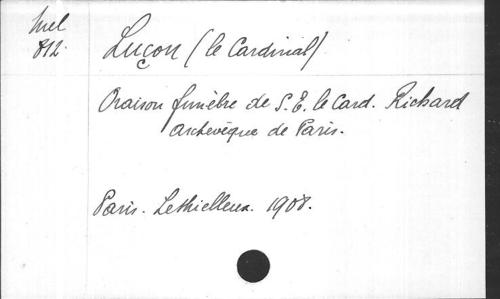 Mel
812.
Luçon (le Cardinal)
Oraison funèbre de S. E. le Card. Richard
archevêque de Paris.
Paris. Lethielleux. 1908.